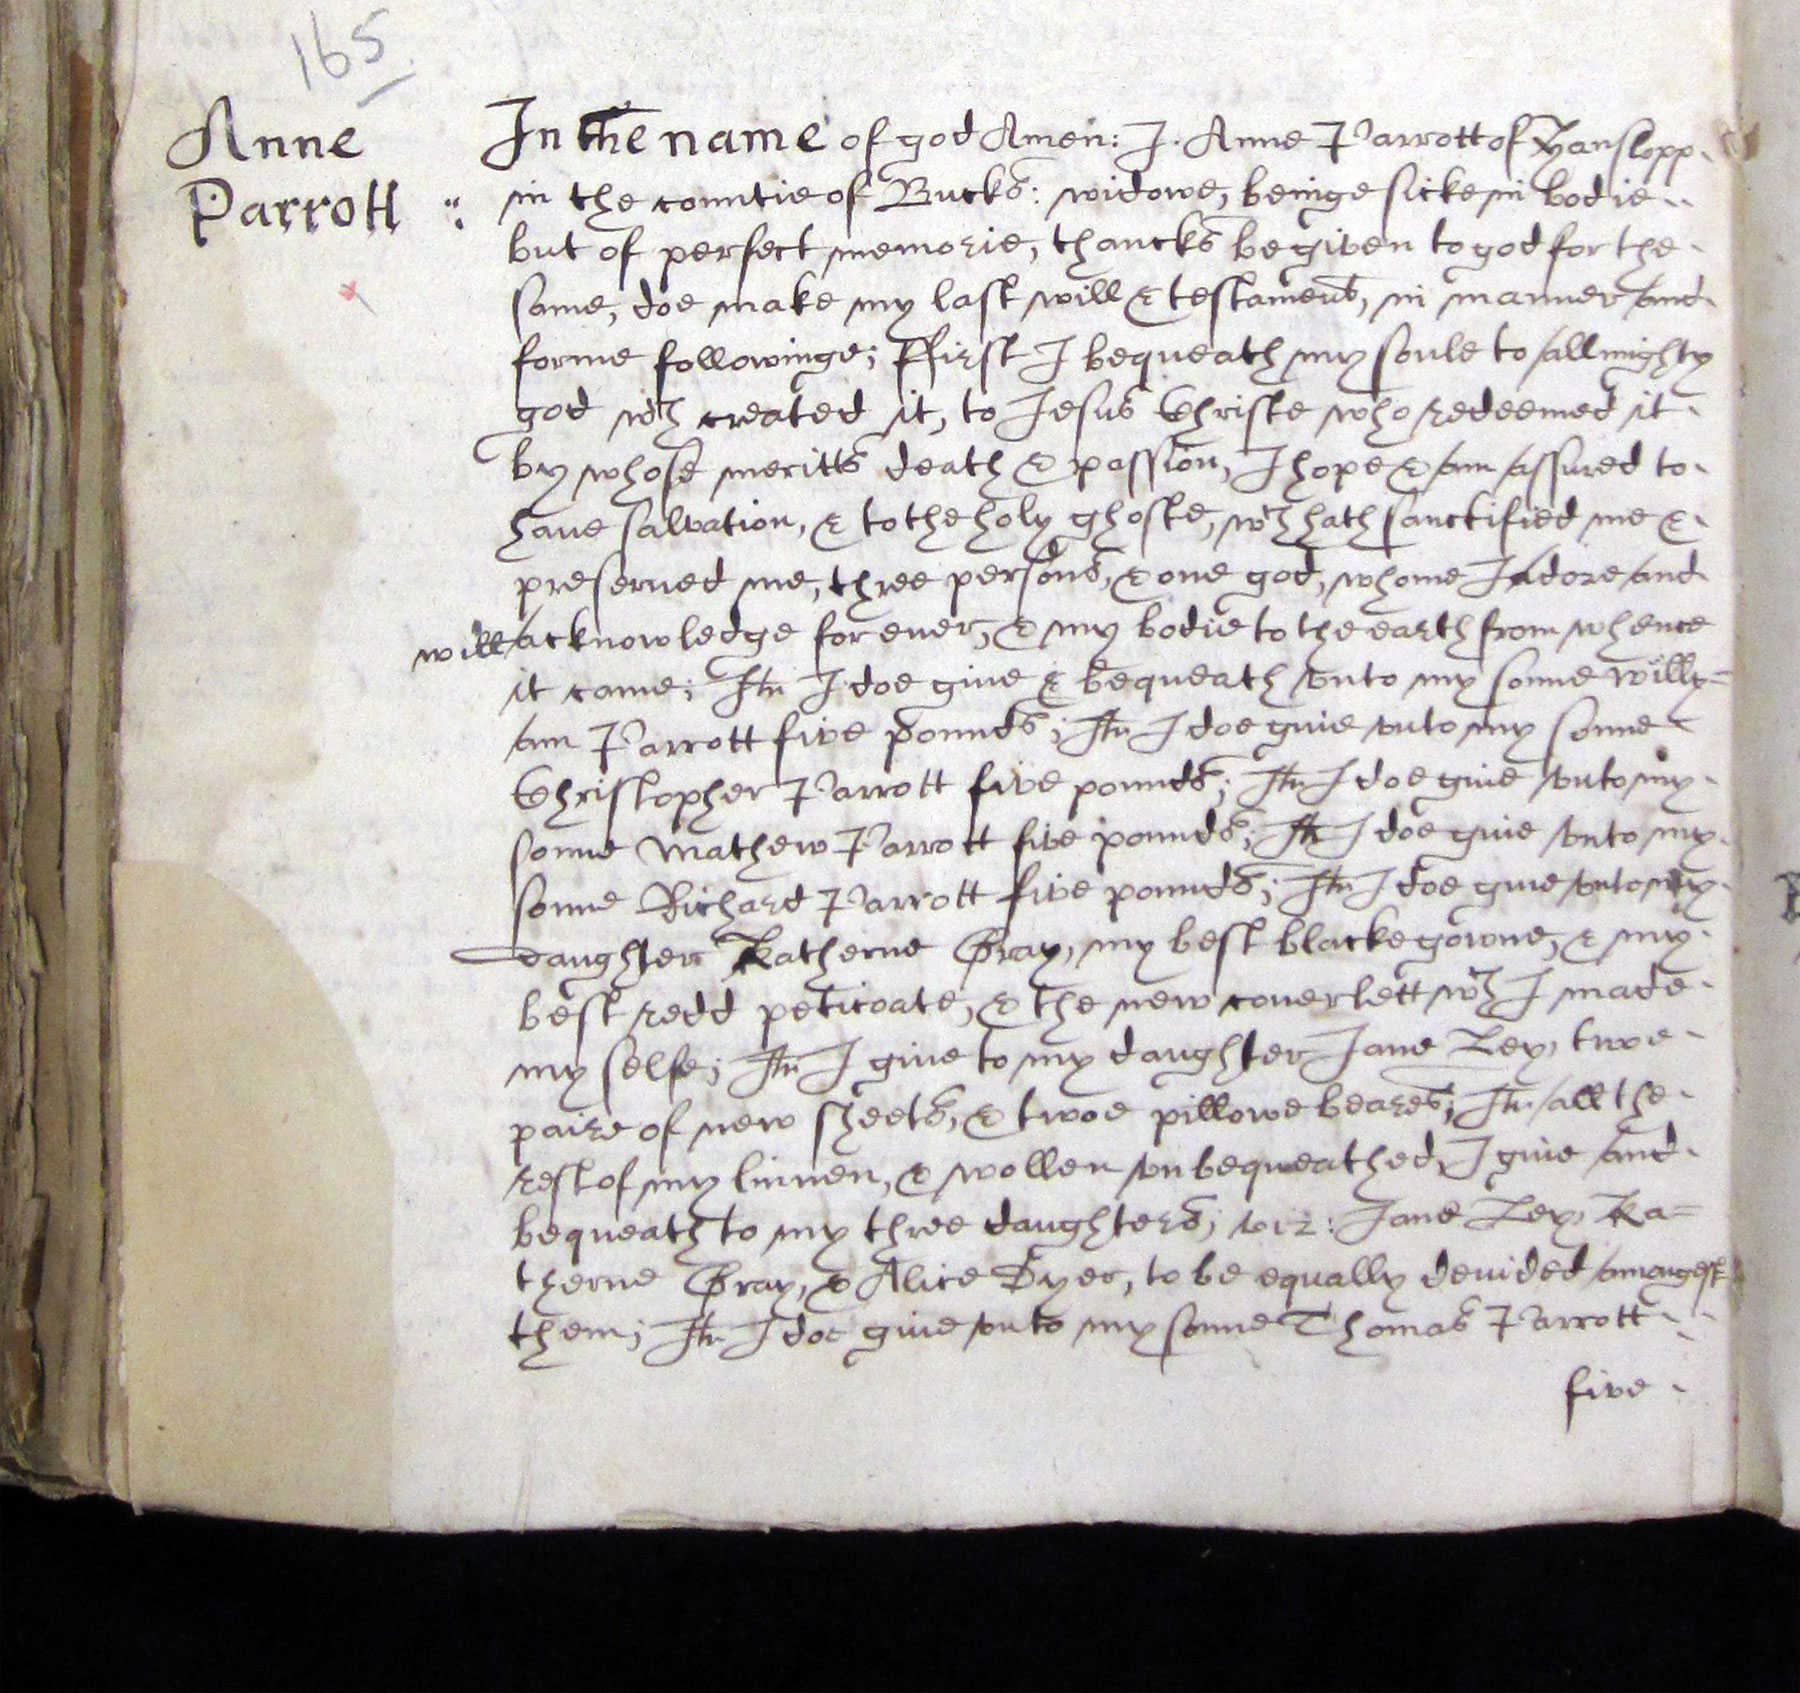 165
Anne
Parrott
In the name of god Amen: I Anne Parrott of Hanslopp
in the countie of Bucks: widowe, beinge sicke in bodie
but of perfect memorie, thancks be given to god for the
same, doe make my last will & testament, in manner and
forme followinge; ffirst I bequeath my soule to allmighty
god wch created it, to Jesus Christe who redeemed it
by whose meritts death & passion, I hope & am assured to
haue salvation, & to the holy ghoste, wch hath sanctified me &
preserued me, three persons, & one god, whome I adore and
will acknowledge for euer, & my bodie to the earth from whence
it came; Itm I doe giue & bequeath vnto my sonne Willy=
am Parrott five pounds; Itm I doe giue vnto my sonne
Christopher Parrott five pounds; Itm I doe giue vnto my
sonne Mathew Parrott five pounds; Itm I doe giue vnto my
sonne Richard Parrott five pounds; Itm I doe giue vnto my
daughter Katherne Gray, my best blacke gowne, & my
best redd peticoate, & the new couerlett wch I made
my selfe; Itm I giue to my daughter Jane Ley, twoe
paire of new sheets, & twoe pillowe beares; Itm all the
rest of my linnen, & wollen vnbequeathed, I giue and
bequeath to my three daughters; viz: Jane Ley, Ka=
therne Gray, & Alice Dyer, to be equally deuided amongest
them; Itm I doe giue vnto my sonne Thomas Parrott
five